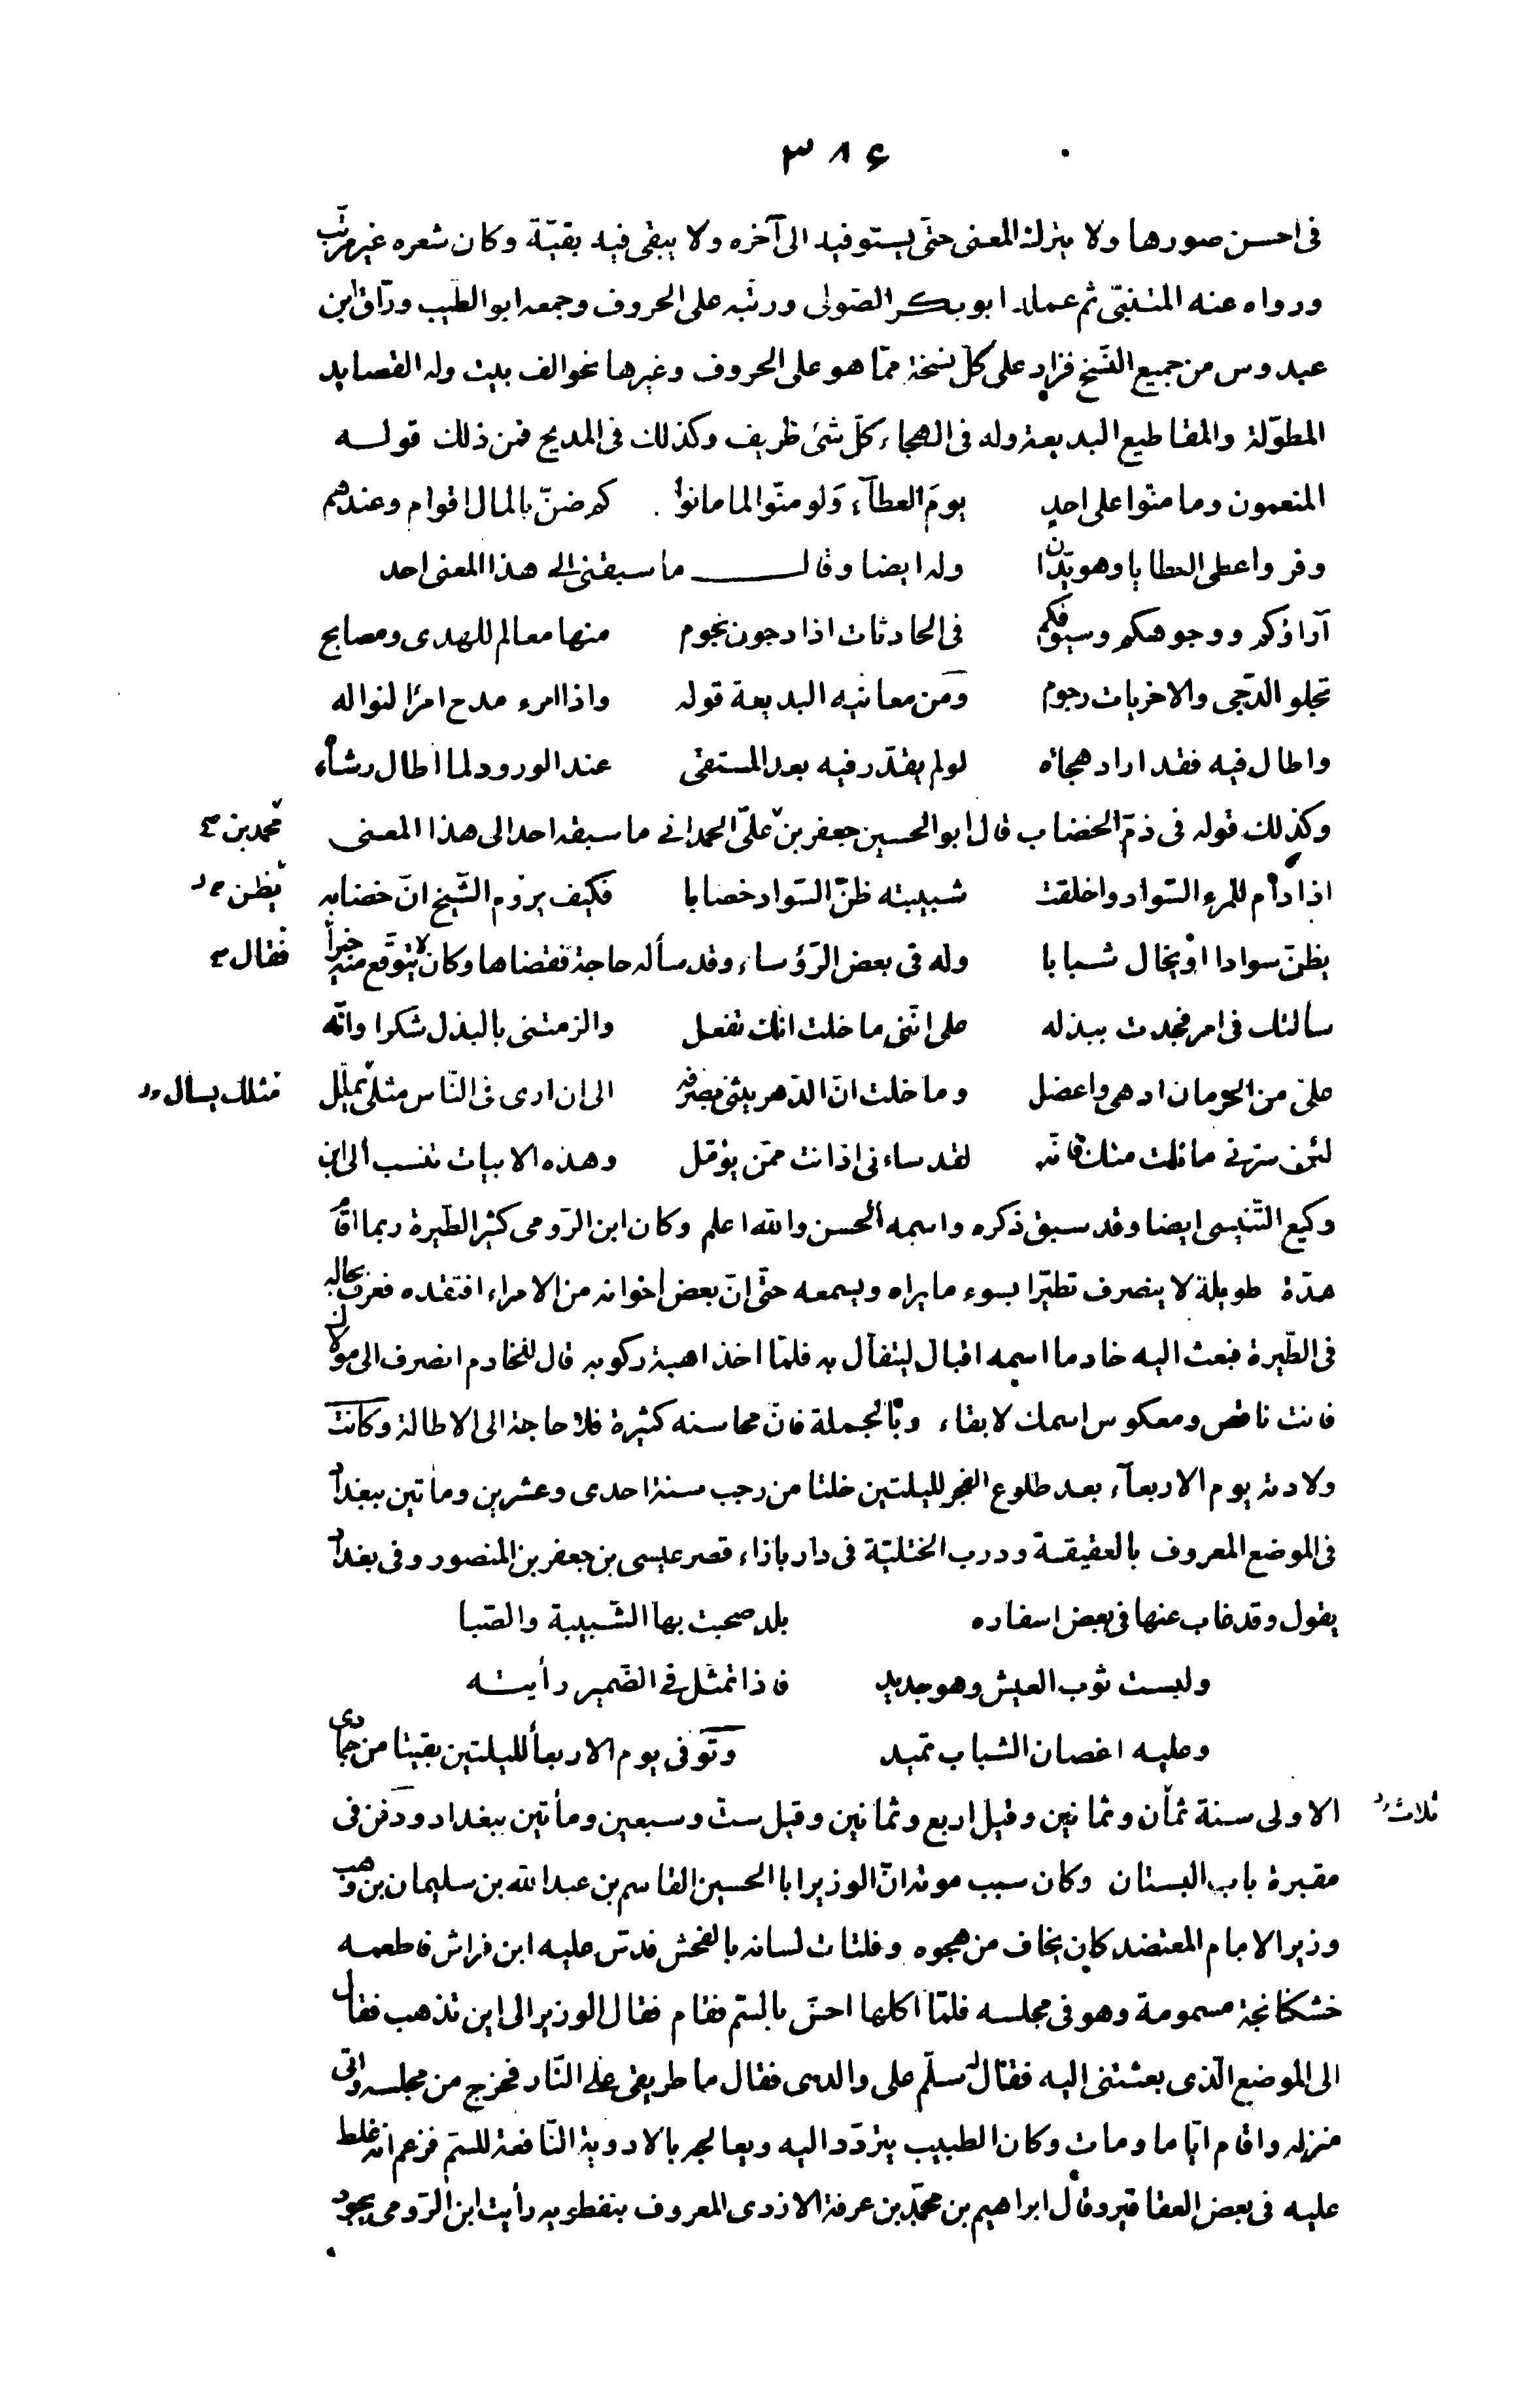 ٣٨۶
فى احسن صورها ولا يترك المعنى حتّى يستوفيه الى آخره ولا يبقى فيه بقيّة وكان شعره غير مرتّب
ورواه عنه المتنبّى ثم عمله ابو بكر الصّولى ورتّبه على الحروف وجمعه ابو الطّيب ورّاق ابن
عبدوس من جميع النّسخ فزاد على كلّ نسخة ممّا هو على الحروف وغيرها نحو الف بيت وله القصايد
المطوّلة والمقاطيع البديعة وله فى الهجاء كلّ شئ ظريف وكذلك فى المديح فمن ذلك قوله
المنعمون وما منّوا على احدٍ يومَ العطآء وَلو منّوا لما مانوا كم ضنّ بالمال اقوام وعندهم
وفر واعطى العطايا وهو يدّان وله ايضا وقال ما سبقنى الى هذا المعنى احد
آراؤكم ووجوهكم وسيوفكم فى الحادثات اذا دجون نجوم منها معالم للهدى ومصابح
تجلو الدّجى والاخريات رجوم ومن معانيه البديعة قوله واذا امرء مدح امرًا لنواله
واطال فيه فقد اراد هجائه لو لم يقدّر فيه بعد المستقى عند الورود لما اطال رشاءه
وكذلك قوله فى ذمّ الخضاب قال ابو الحسين جعفر بن علىّ الحمدانى ما سبقه احد الى هذا المعنى
محمد بن
اذا دام للمرء السّواد واخلقت شبيبته ظنّ السّواد خضابا فكيف يروم الشّيخ انّ خضابه
يظن
يظنّ سوادا او يخال شبابا وله فى بعض الرّؤساء وقد سأله حاجة فقضاها وكان لا يتوقّع منه خيرا
فقال
سألتك فى امر فجدت ببذله على انّنى ما خلت انّك تفعل والزمتنى بالبذل شكرا وانّه
علىّ من الحرمان ادهى واعضل وما خلت انّ الدّهر يثنى بصرفه الى ان ارى فى النّاس مثلى
مثلك يسأل
لئن سرّنى ما نلت منك فانّه لقد ساءنى اذ انت ممّن يؤمّل وهذه الابيات تنسب الى ابن
وكيع التّنيسى ايضا وقد سبق ذكره واسمه الحسن والله اعلم وكان ابن الرّومى كثير الطّيرة ربما اقام
مدّة طويلة لا ينصرف تطيّرا بسوء ما يراه ويسمعه حتّى انّ بعض اخوانه من الامراء افتقده فعرف بحاله
فى الطّيرة فبعث اليه خادما اسمه اقبال ليتفأل به فلمّا اخذ اهبة ركوبه قال للخادم انصرف الى مولاك
فانت ناقص ومعكوس اسمك لا بقاء وبالجملة فانّ محاسنه كثيرة فلا حاجة الى الاطالة وكانت
ولادته يوم الاربعآء بعد طلوع الفجر لليلتين خلتا من رجب سنة احدى وعشرين ومأتين ببغداد
فى الموضع المعروف بالعقيقة ودرب الختليّة فى دار بازاء قصر عيسى بن جعفر بن المنصور وفى بغداد
يقول وقد غاب عنها فى بعض اسفاره بلد صحبت بها الشّبيبة والصّبا
ولبست ثوب العيش وهو جديد فاذا تمثّل فى الضّمير رأيته
وعليه اغصان الشباب تميد وتوّفى يوم الاربعأ لليلتين بقيتا من جمادى
الاولى سنة ثمان وثمانين وقيل اربع وثمانين وقيل ستّ وسبعين ومأتين ببغداد ودفن فى
ثلاث
مقبرة باب البستان وكان سبب موته انّ الوزير ابا الحسين القاسم بن عبد الله بن سليمان بن وهب
وزير الامام المعتضد كان يخاف من هجوه وفلتات لسانه بالفحش فدسّ عليه ابن فراش فاطعمه
خشكنانجة مسمومة وهو فى مجلسه فلمّا اكلها احسّ بالسّم فقام فقال الوزير الى اين تذهب فقال
الى الموضع الّذى بعثتنى اليه فقال له سلّم على والدى فقال ما طريقى على النّار فخرج من مجلسه واتى
منزله واقام ايّاما ومات وكان الطبيب يتردّد اليه ويعالجه بالادوية النّافعة للسّم فزعم انه غلط
عليه فى بعض العقاقير وقال ابراهيم بن محمّد بن عرفة الازدى المعروف بنفطويه رأيت ابن الرّومى يجود